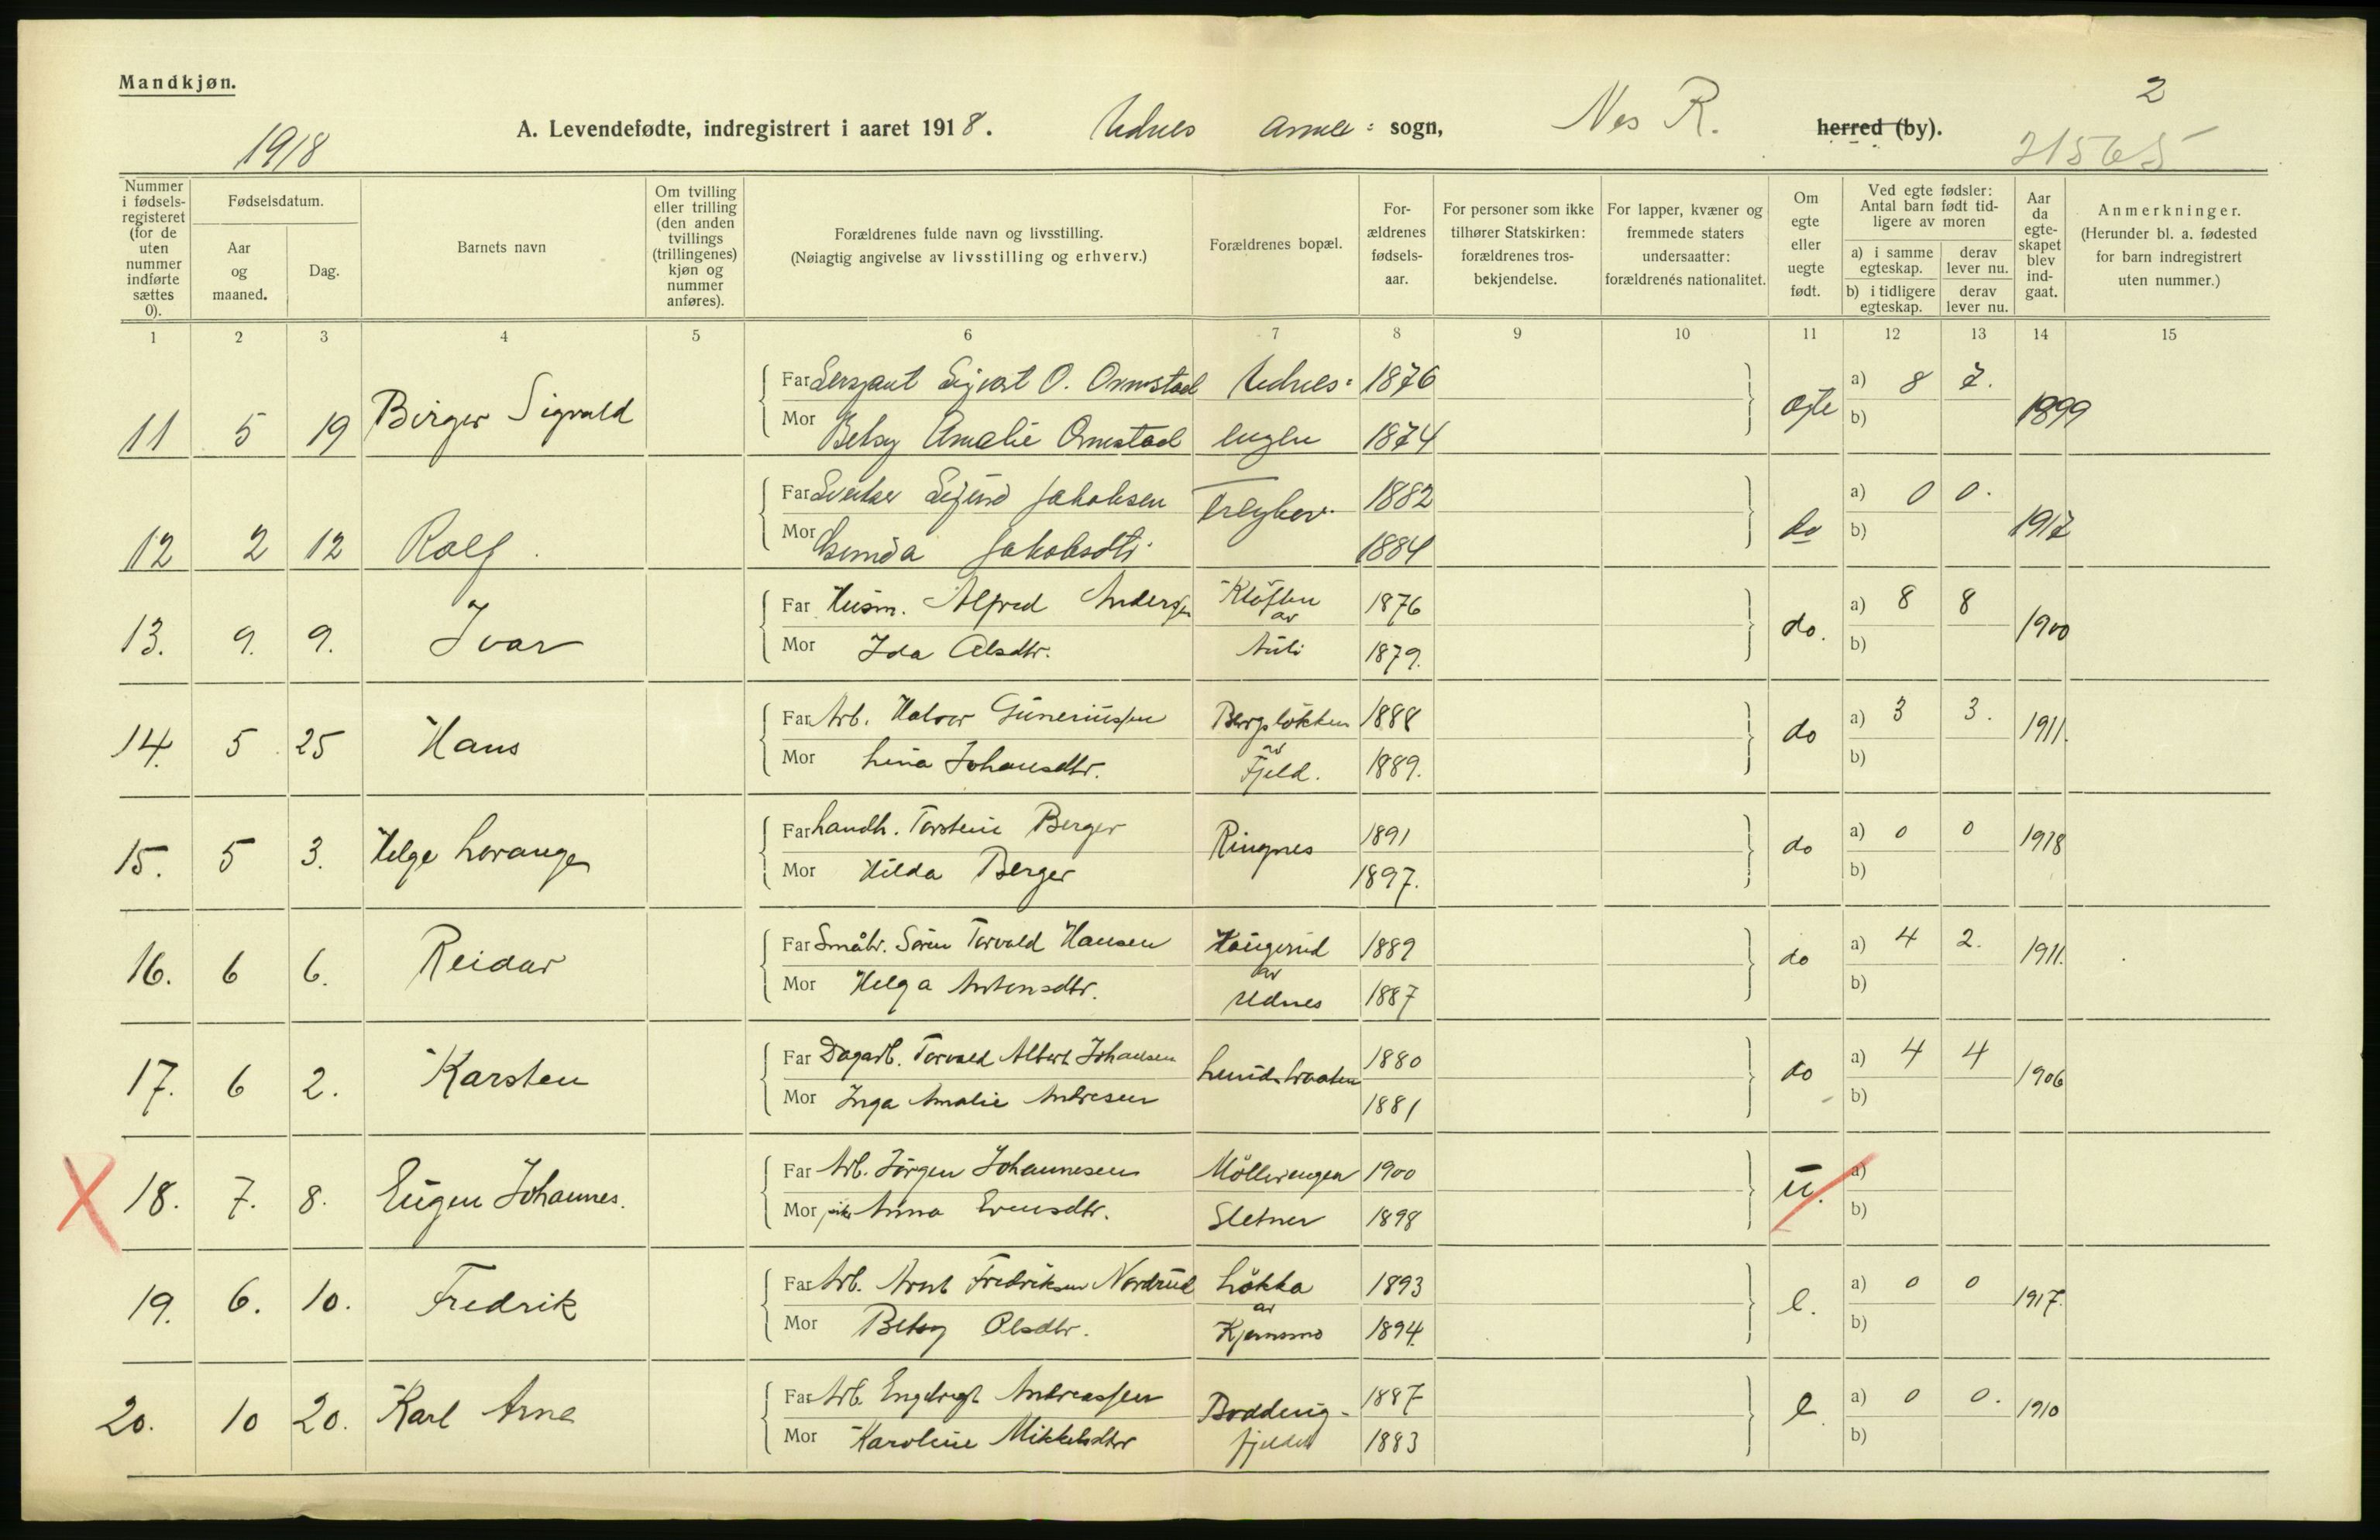 Mandkjøn.
2
A. Levendefødte, indregistrert i aaret 1918. Udnes sogn, Nes R. herred (by).
1918
21565
Nummer i fødselsregisteret (for de uten nummer indførte sættes 0).
Fødselsdatum.
Aar og maaned.
Dag.
Barnets navn
Om tvilling eller trilling (den anden tvillings (trillingenes) kjøn og nummer anføres).
Forældrenes fulde navn og livsstilling.
(Nøiagtig angivelse av livsstilling og erhverv.)
Forældrenes bopæl.
Forældrenes fødselsaar.
For personer som ikke tilhører Statskirken: forældrenes trosbekjendelse.
For lapper, kvæner og fremmede staters undersaatter: forældrenes nationalitet.
Om egte eller uegte født.
Ved egte fødsler: Antal barn født tidligere av moren
a) i samme egteskap.
derav lever nu.
b) i tidligere egteskap.
derav lever nu.
Aar da egteskapet blev indgaat.
Anmerkninger.
(Herunder bl. a. fødested for barn indregistrert uten nummer.)
1 2 3 4 5 6 7 8 9 10 11 12 13 14 15
Far Sersjant Sigvart O. Ormstad Udnes= 1876 a) 8 7.
11 5 19 Birger Sigvald egte 1899
Mor Betsy Amalie Ormstad engen 1874 b)
Far Sigurd Jakobsen 1882 a) 0 0.
12 2 12 Rolf. do 1917
Mor Jakobsdtr. 1884 b)
Far Husm. Alfred Andersen Kløften av 1876 a) 8 8
13. 9. 9. Ivar do. 1900
Mor Ida Olsdtr. Auli 1879. b)
Far Arb. Halvor Gunerius­sen Bergsløkken 1888 a) 3 3.
14. 5 25 Hans av do 1911.
Mor Lina Johansdtr. Fjeld. 1889. b)
Far Landh. Torstein Berger 1891 a) 0 0
15. 5 3. Helge Lorange Ringnes do 1918
Mor Hilda Berger 1897. b)
Far Småbr. Søren Torvald Hansen Haugerud 1889 a) 4 2.
16. 6 6. Reidar av do 1911.
Mor Helga Antonsdtr. Udnes 1887 b)
Far Dagarb. Torvald Albert Johansen 1880 a) 4 4
17. 6 2. Karsten do 1906
Mor Inga Amalie Andresen 1881 b)
Far Arb. Jörgen Johannesen Möllerengen 1900 a)
18. 7. 8. Eugen Johannes. u.
Mor pike Anna Evensdtr. Sletner 1898 b)
Far Arb. Arnt Fredriksen Nordrud Løkka 1893 a) 0 0
19. 6. 10. Fredrik av e. 1917.
Mor Betsy Olsdtr. Kjernsmo 1894. b)
Far Arb. Engebregt Andreassen 1887 a) 0 0.
20. 10 20. Karl Arne e. 1910
Mor Karoline Mikkelsdtr fjeldet 1883 b)